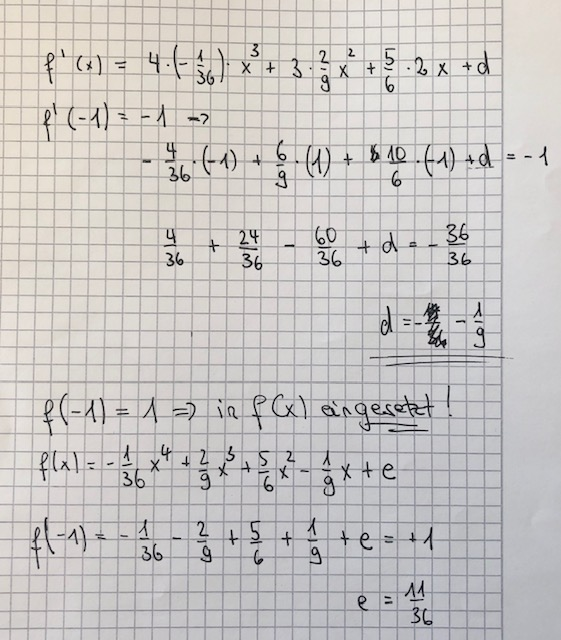 f'(x) = 4·(-1/36)·x³ + 3·2/9 x² + 5/6·2x + d
f'(-1) = -1 ->
-4/36·(-1) + 6/9·(1) + 10/6·(-1) + d = -1
4/36 + 24/36 - 60/36 + d = -36/36
d = - 1/9
f(-1) = 1 => in f(x) eingesetzt!
f(x) = -1/36 x⁴ + 2/9 x³ + 5/6 x² - 1/9 x + e
f(-1) = -1/36 - 2/9 + 5/6 + 1/9 + e = +1
e = 11/36